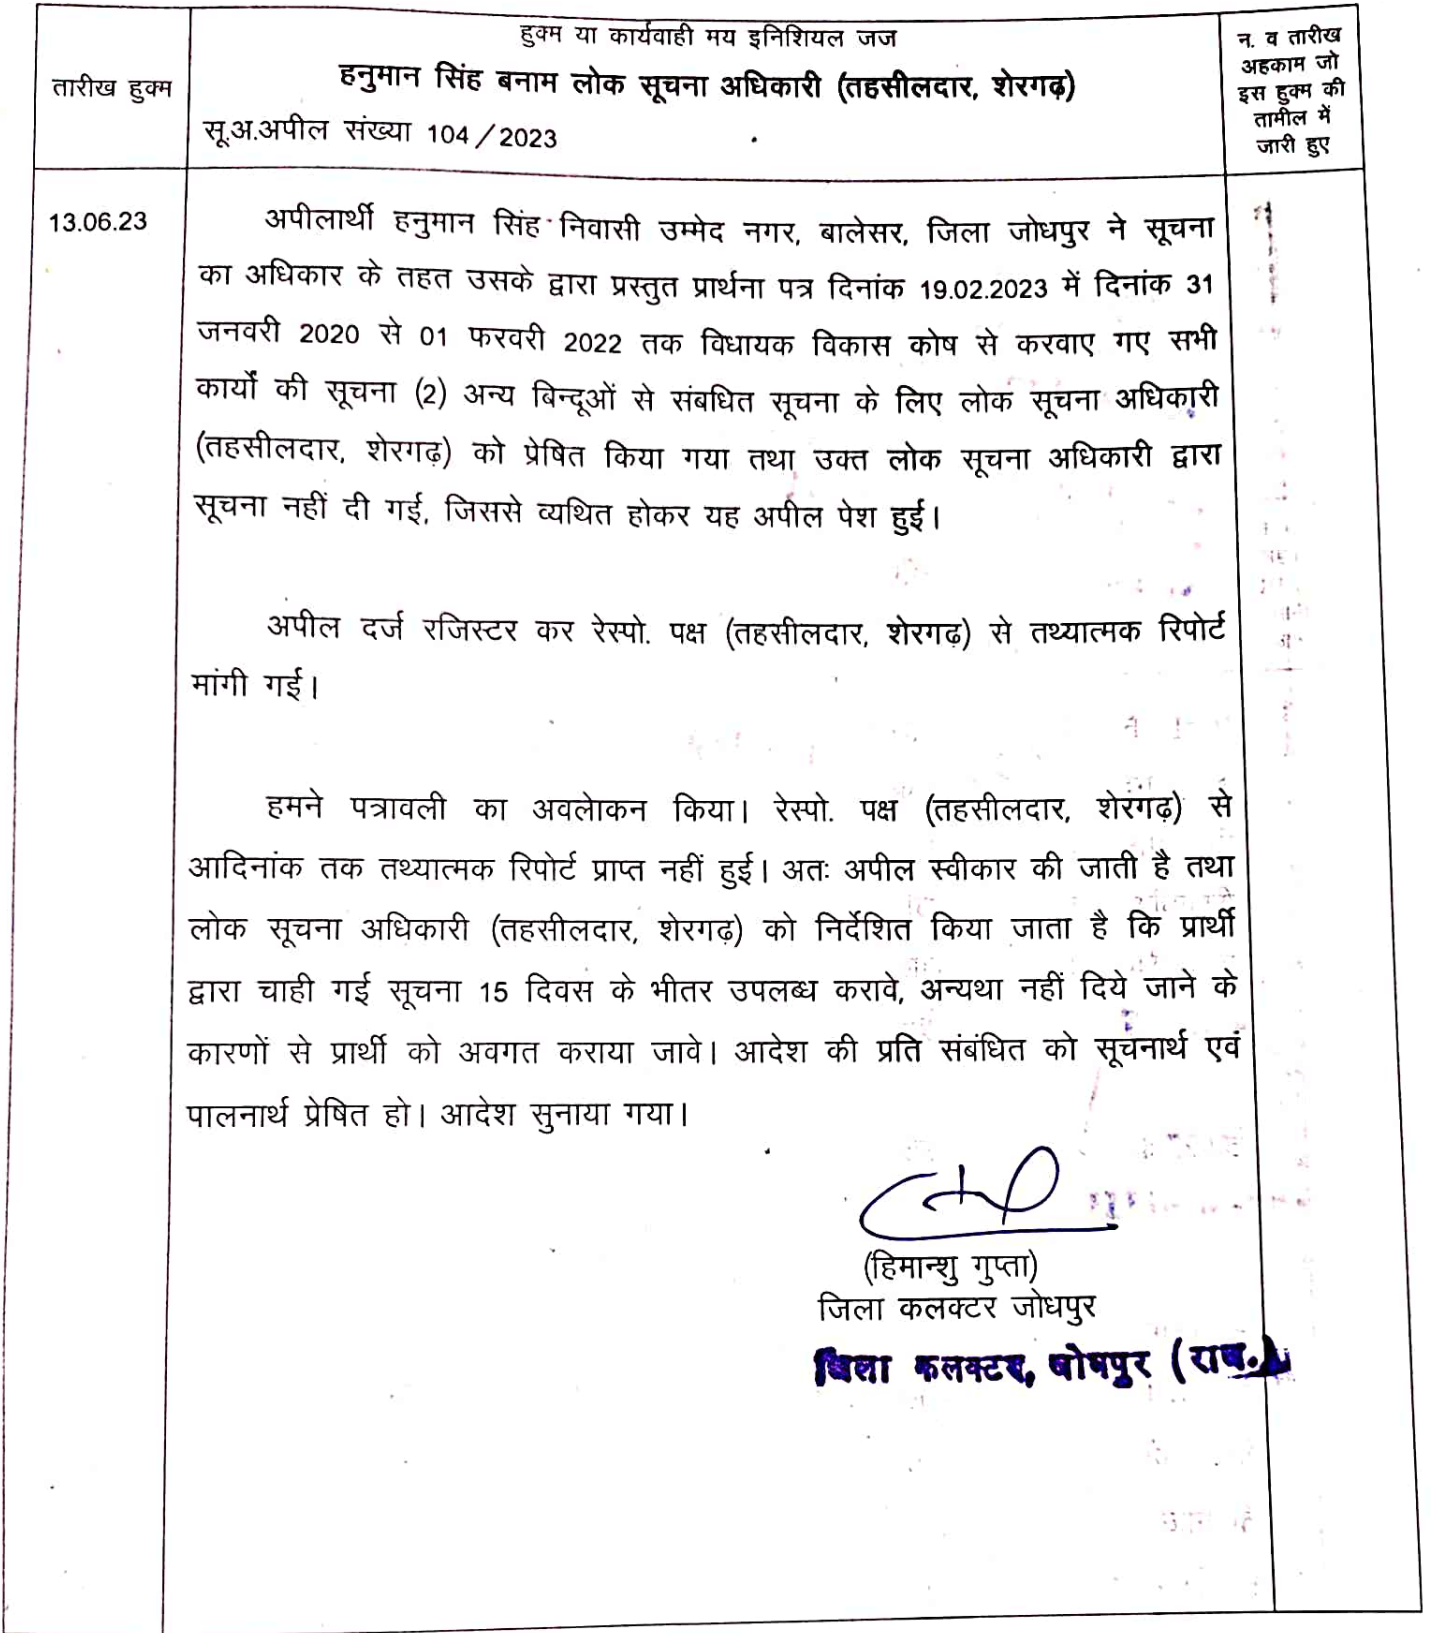 तारीख हुक्म
हुक्म या कार्यवाही मय इनिशियल जज
हनुमान सिंह बनाम लोक सूचना अधिकारी (तहसीलदार, शेरगढ़)
सू.अ.अपील संख्या 104/2023
न. व तारीख
अहकाम जो
इस हुक्म की
तामील में
जारी हुए
13.06.23
अपीलार्थी हनुमान सिंह निवासी उम्मेद नगर, बालेसर, जिला जोधपुर ने सूचना
का अधिकार के तहत उसके द्वारा प्रस्तुत प्रार्थना पत्र दिनांक 19.02.2023 में दिनांक 31
जनवरी 2020 से 01 फरवरी 2022 तक विधायक विकास कोष से करवाए गए सभी
कार्यों की सूचना (2) अन्य बिन्दूओं से संबधित सूचना के लिए लोक सूचना अधिकारी
(तहसीलदार, शेरगढ़) को प्रेषित किया गया तथा उक्त लोक सूचना अधिकारी द्वारा
सूचना नहीं दी गई, जिससे व्यथित होकर यह अपील पेश हुई।
अपील दर्ज रजिस्टर कर रेस्पो. पक्ष (तहसीलदार, शेरगढ़) से तथ्यात्मक रिपोर्ट
मांगी गई।
हमने पत्रावली का अवलोकन किया। रेस्पो. पक्ष (तहसीलदार, शेरगढ़) से
आदिनांक तक तथ्यात्मक रिपोर्ट प्राप्त नहीं हुई। अतः अपील स्वीकार की जाती है तथा
लोक सूचना अधिकारी (तहसीलदार, शेरगढ़) को निर्देशित किया जाता है कि प्रार्थी
द्वारा चाही गई सूचना 15 दिवस के भीतर उपलब्ध करावे, अन्यथा नहीं दिये जाने के
कारणों से प्रार्थी को अवगत कराया जावे। आदेश की प्रति संबंधित को सूचनार्थ एवं
पालनार्थ प्रेषित हो। आदेश सुनाया गया।
(हिमान्शु गुप्ता)
जिला कलक्टर जोधपुर
जिला कलक्टर, जोधपुर (राज.)